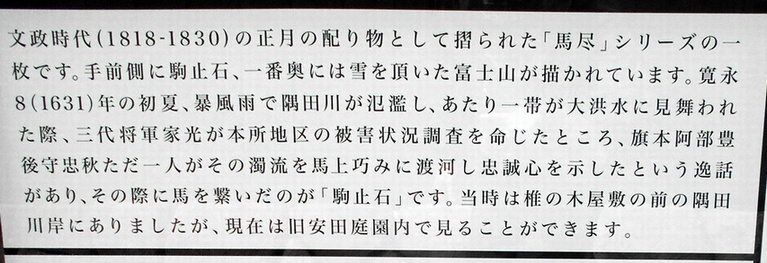 文政時代(1818-1830)の正月の配り物として摺られた「馬尽」シリーズの一
枚です。手前側に駒止石、一番奥には雪を頂いた富士山が描かれています。寛永
8(1631)年の初夏、暴風雨で隅田川が氾濫し、あたり一帯が大洪水に見舞われ
た際、三代将軍家光が本所地区の被害状況調査を命じたところ、旗本阿部豊
後守忠秋ただ一人がその濁流を馬上巧みに渡河し忠誠心を示したという逸話
があり、その際に馬を繋いだのが「駒止石」です。当時は椎の木屋敷の前の隅田
川岸にありましたが、現在は旧安田庭園内で見ることができます。